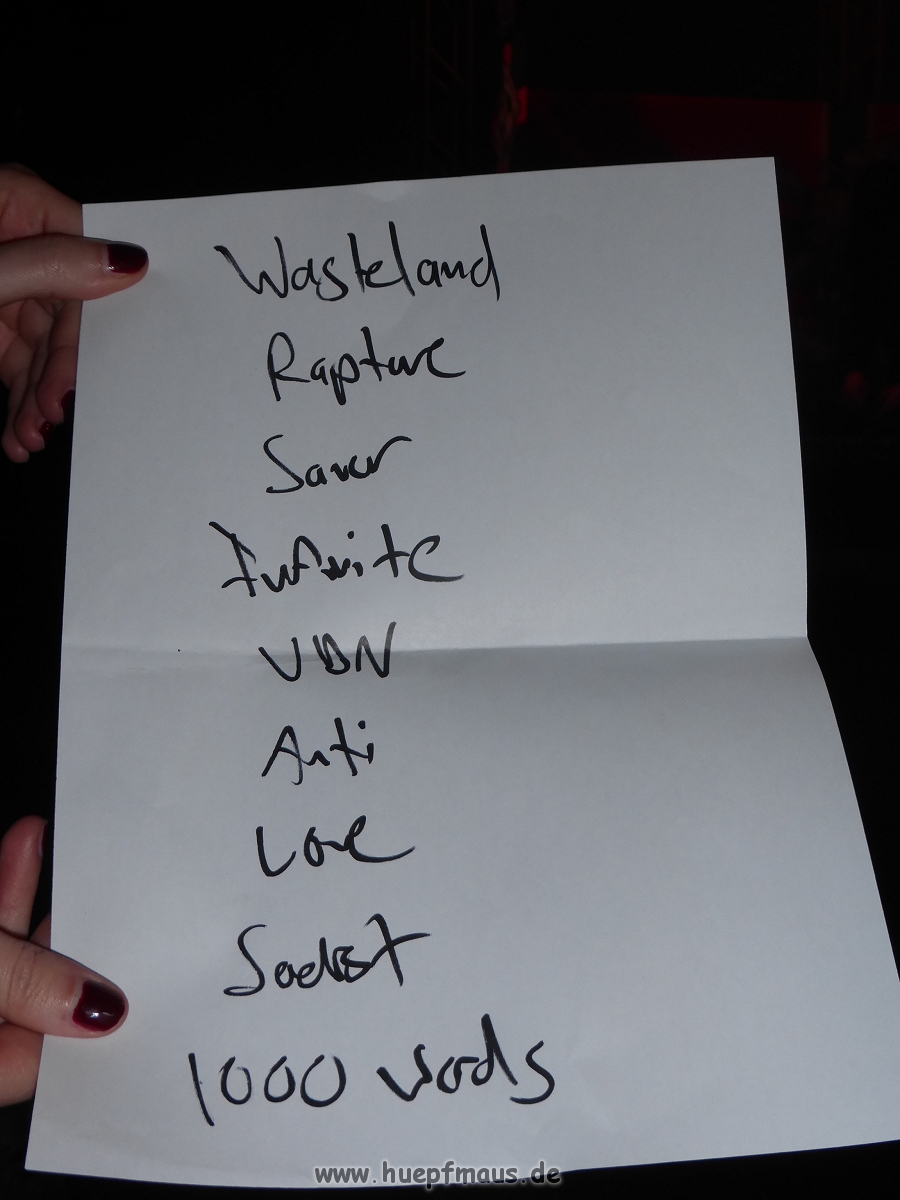 Wasteland
Rapture
Saver
Infinite
VBN
Anti
Love
1000 words
www.huepfmaus.de